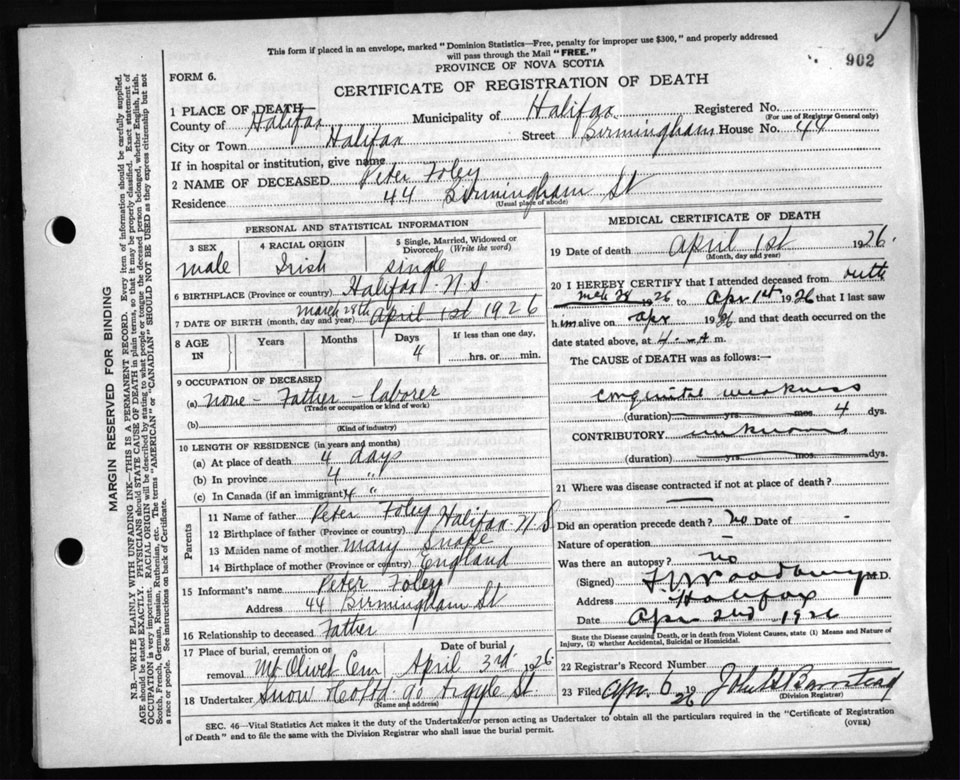 This form if placed in an envelope, marked "Dominion Statistics—Free, penalty for improper use $300," and properly addressed
will pass through the Mail "FREE."
902
PROVINCE OF NOVA SCOTIA
FORM 6.
CERTIFICATE OF REGISTRATION OF DEATH
1 PLACE OF DEATH—
County of Halifax Municipality of Halifax Registered No.
(For use of Registrar General only)
City or Town Halifax Street Birmingham House No. 44
If in hospital or institution, give name
2 NAME OF DECEASED Peter Foley
Residence 44 Birmingham St
(Usual place of abode)
PERSONAL AND STATISTICAL INFORMATION
3 SEX male
4 RACIAL ORIGIN Irish
5 Single, Married, Widowed or Divorced, (Write the word) single
6 BIRTHPLACE (Province or country) Halifax N.S.
7 DATE OF BIRTH (month, day and year) March 28th April 1st 1926
8 AGE IN Years Months Days 4 If less than one day, hrs. or min.
9 OCCUPATION OF DECEASED
(a) none - Father - laborer
(Trade or occupation or kind of work)
(b)
(Kind of industry)
10 LENGTH OF RESIDENCE (in years and months)
(a) At place of death 4 days
(b) In province 4 "
(c) In Canada (if an immigrant) 4 "
Parents
11 Name of father Peter Foley
12 Birthplace of father (Province or country) Halifax N S
13 Maiden name of mother Mary Snape
14 Birthplace of mother (Province or country) England
15 Informant's name Peter Foley
Address 44 Birmingham St
16 Relationship to deceased Father
17 Place of burial, cremation or removal Mt Olivet Cem
Date of burial April 3rd 1926
18 Undertaker Snow & Co Ltd 90 Argyle St.
(Name and address)
MEDICAL CERTIFICATE OF DEATH
19 Date of death April 1st 1926.
(Month, day and year)
20 I HEREBY CERTIFY that I attended deceased from birth
Mch 28 1926 to Apr 1st 1926 that I last saw
him alive on Apr 1926 and that death occurred on the
date stated above, at 4 A m.
The CAUSE of DEATH was as follows:—
Congenital weakness
(duration) yrs. mos. 4 dys.
CONTRIBUTORY unknown
(duration) yrs. mos. dys.
21 Where was disease contracted if not at place of death?
Did an operation precede death? no Date of -
Nature of operation -
Was there an autopsy? no
(Signed) Woodbury M.D.
Address Halifax
Date Apr 2nd 1926
State the Disease causing Death, or in death from Violent Causes, state (1) Means and Nature of
Injury, (2) whether Accidental, Suicidal or Homicidal.
22 Registrar's Record Number
23 Filed Apr. 6 1926 John H Barnstead
(Division Registrar)
SEC. 46—Vital Statistics Act makes it the duty of the Undertaker or person acting as Undertaker to obtain all the particulars required in the "Certificate of Registration
of Death" and to file the same with the Division Registrar who shall issue the burial permit.
(OVER)
MARGIN RESERVED FOR BINDING
N.B.—WRITE PLAINLY WITH UNFADING INK—THIS IS A PERMANENT RECORD. Every item of information should be carefully supplied.
AGE should be stated EXACTLY. PHYSICIANS should STATE CAUSE OF DEATH in plain terms, so that it may be properly classified. Exact statement of
OCCUPATION is very important. RACIAL ORIGIN will be described by stating to what people or tongue the deceased person belonged, whether English, Irish,
Scotch, French, German, Russian, Ruthenian, etc. The terms "AMERICAN" or "CANADIAN" SHOULD NOT BE USED as they express citizenship but not
a race or people. See instructions on back of Certificate.